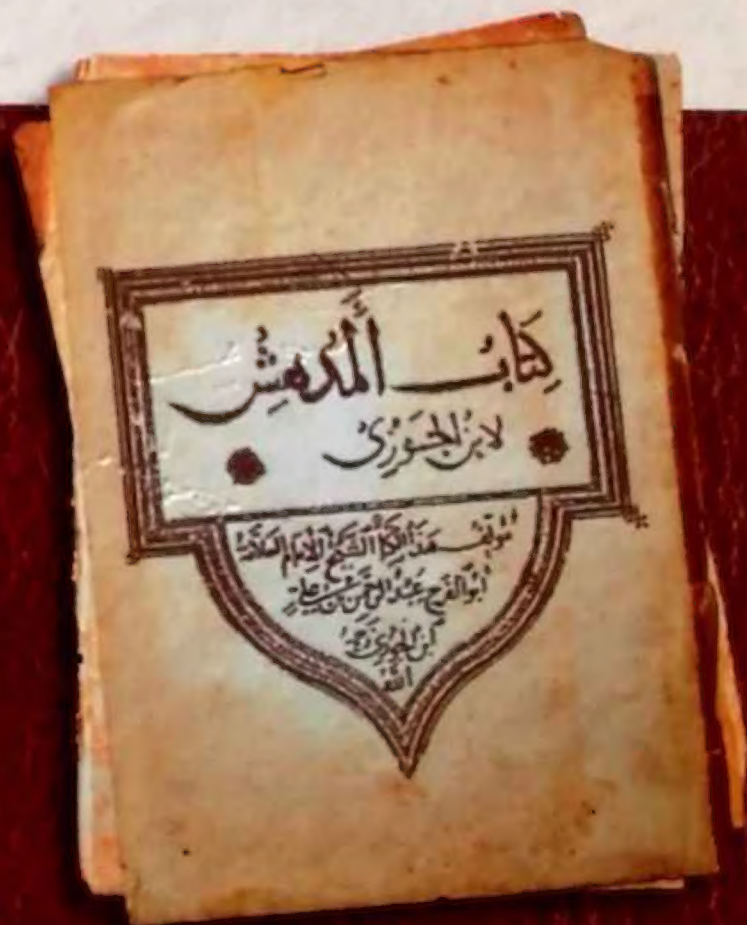 كِتَابُ المُدْهِشِ
لابْنِ الجَوْزِى
مُؤلِّفُ هَذَا الكِتَاب الشَّيخُ الإمَام العَلّامَة
أبُو الفَرَج عَبْدُ الرَّحْمٰن بْن عَلِى
ابْن الجَوْزِى رَحِمَهُ
اللَّهُ